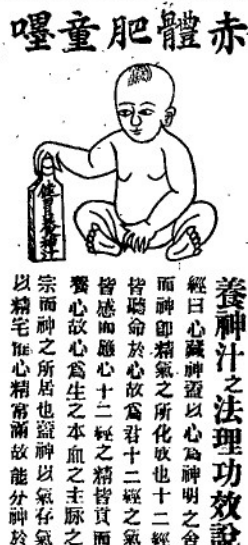 赤體肥童嚜
養神汁
養神汁之法理功效說
經曰心藏神蓋以心為神明之舍
而神卽精氣之所化也十二經
皆聽命於心故為君十二經之氣
皆感而應心十二經之精皆貢而
養心故心為生之本血之主脉之
宗而神之所居也蓋神以氣存氣
以精宅惟心精富滿故能分神於